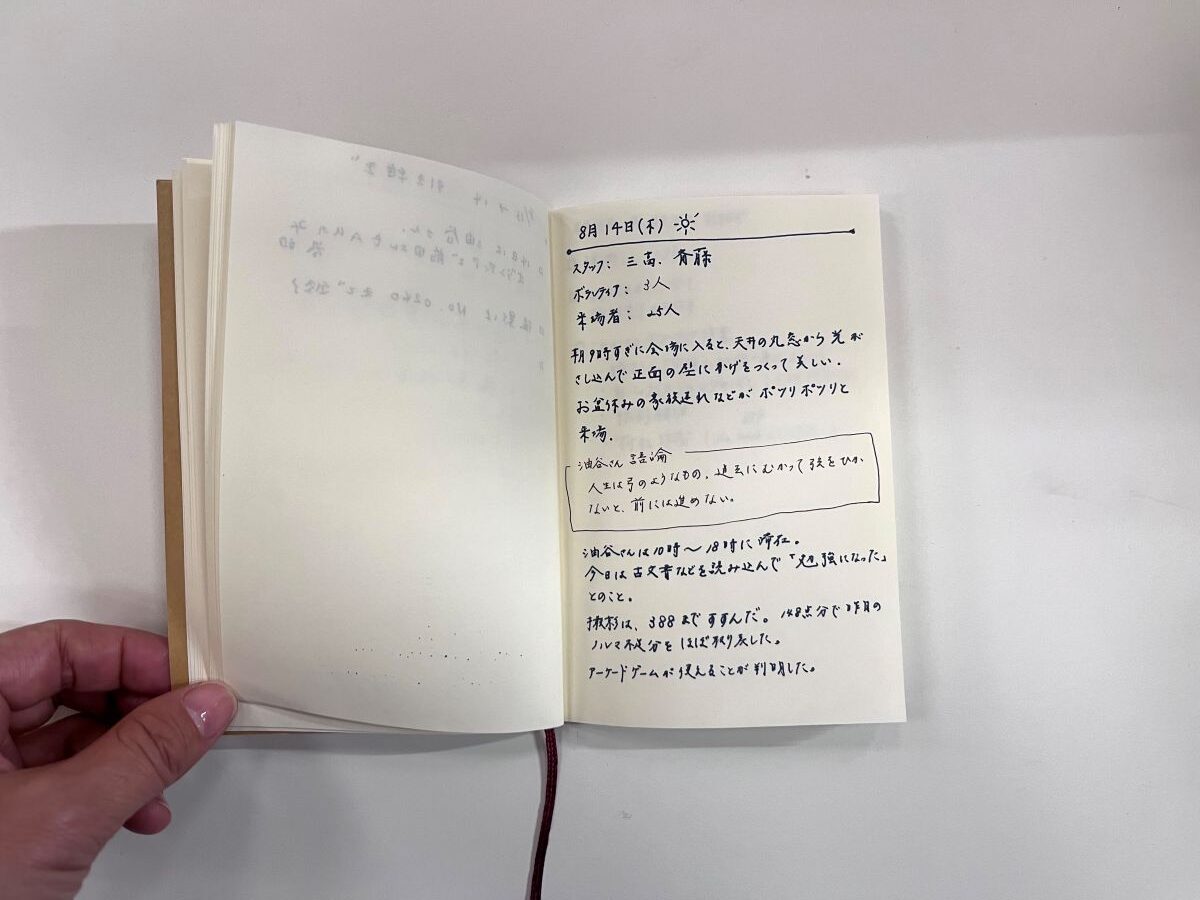 8月14日(木)
スタッフ: 三高、斉藤
ボランティア: 3人
来場者: 25人
朝9時すぎに会場に入ると、天井の丸窓から光が
さし込んで正面の壁にかげをつくって美しい。
お盆休みの家族連れなどがポツリポツリと
来場。
油谷さん語論
人生は弓のようなもの。過去にむかって弦をひか
ないと、前には進めない。
油谷さんは10時〜18時に滞在。
今日は古文書などを読み込んで「勉強になった」
とのこと。
撮影は、388まですすんだ。148点分で昨日の
ノルマ不足分をほぼ取り戻した。
アーケードゲームが使えることが判明した。